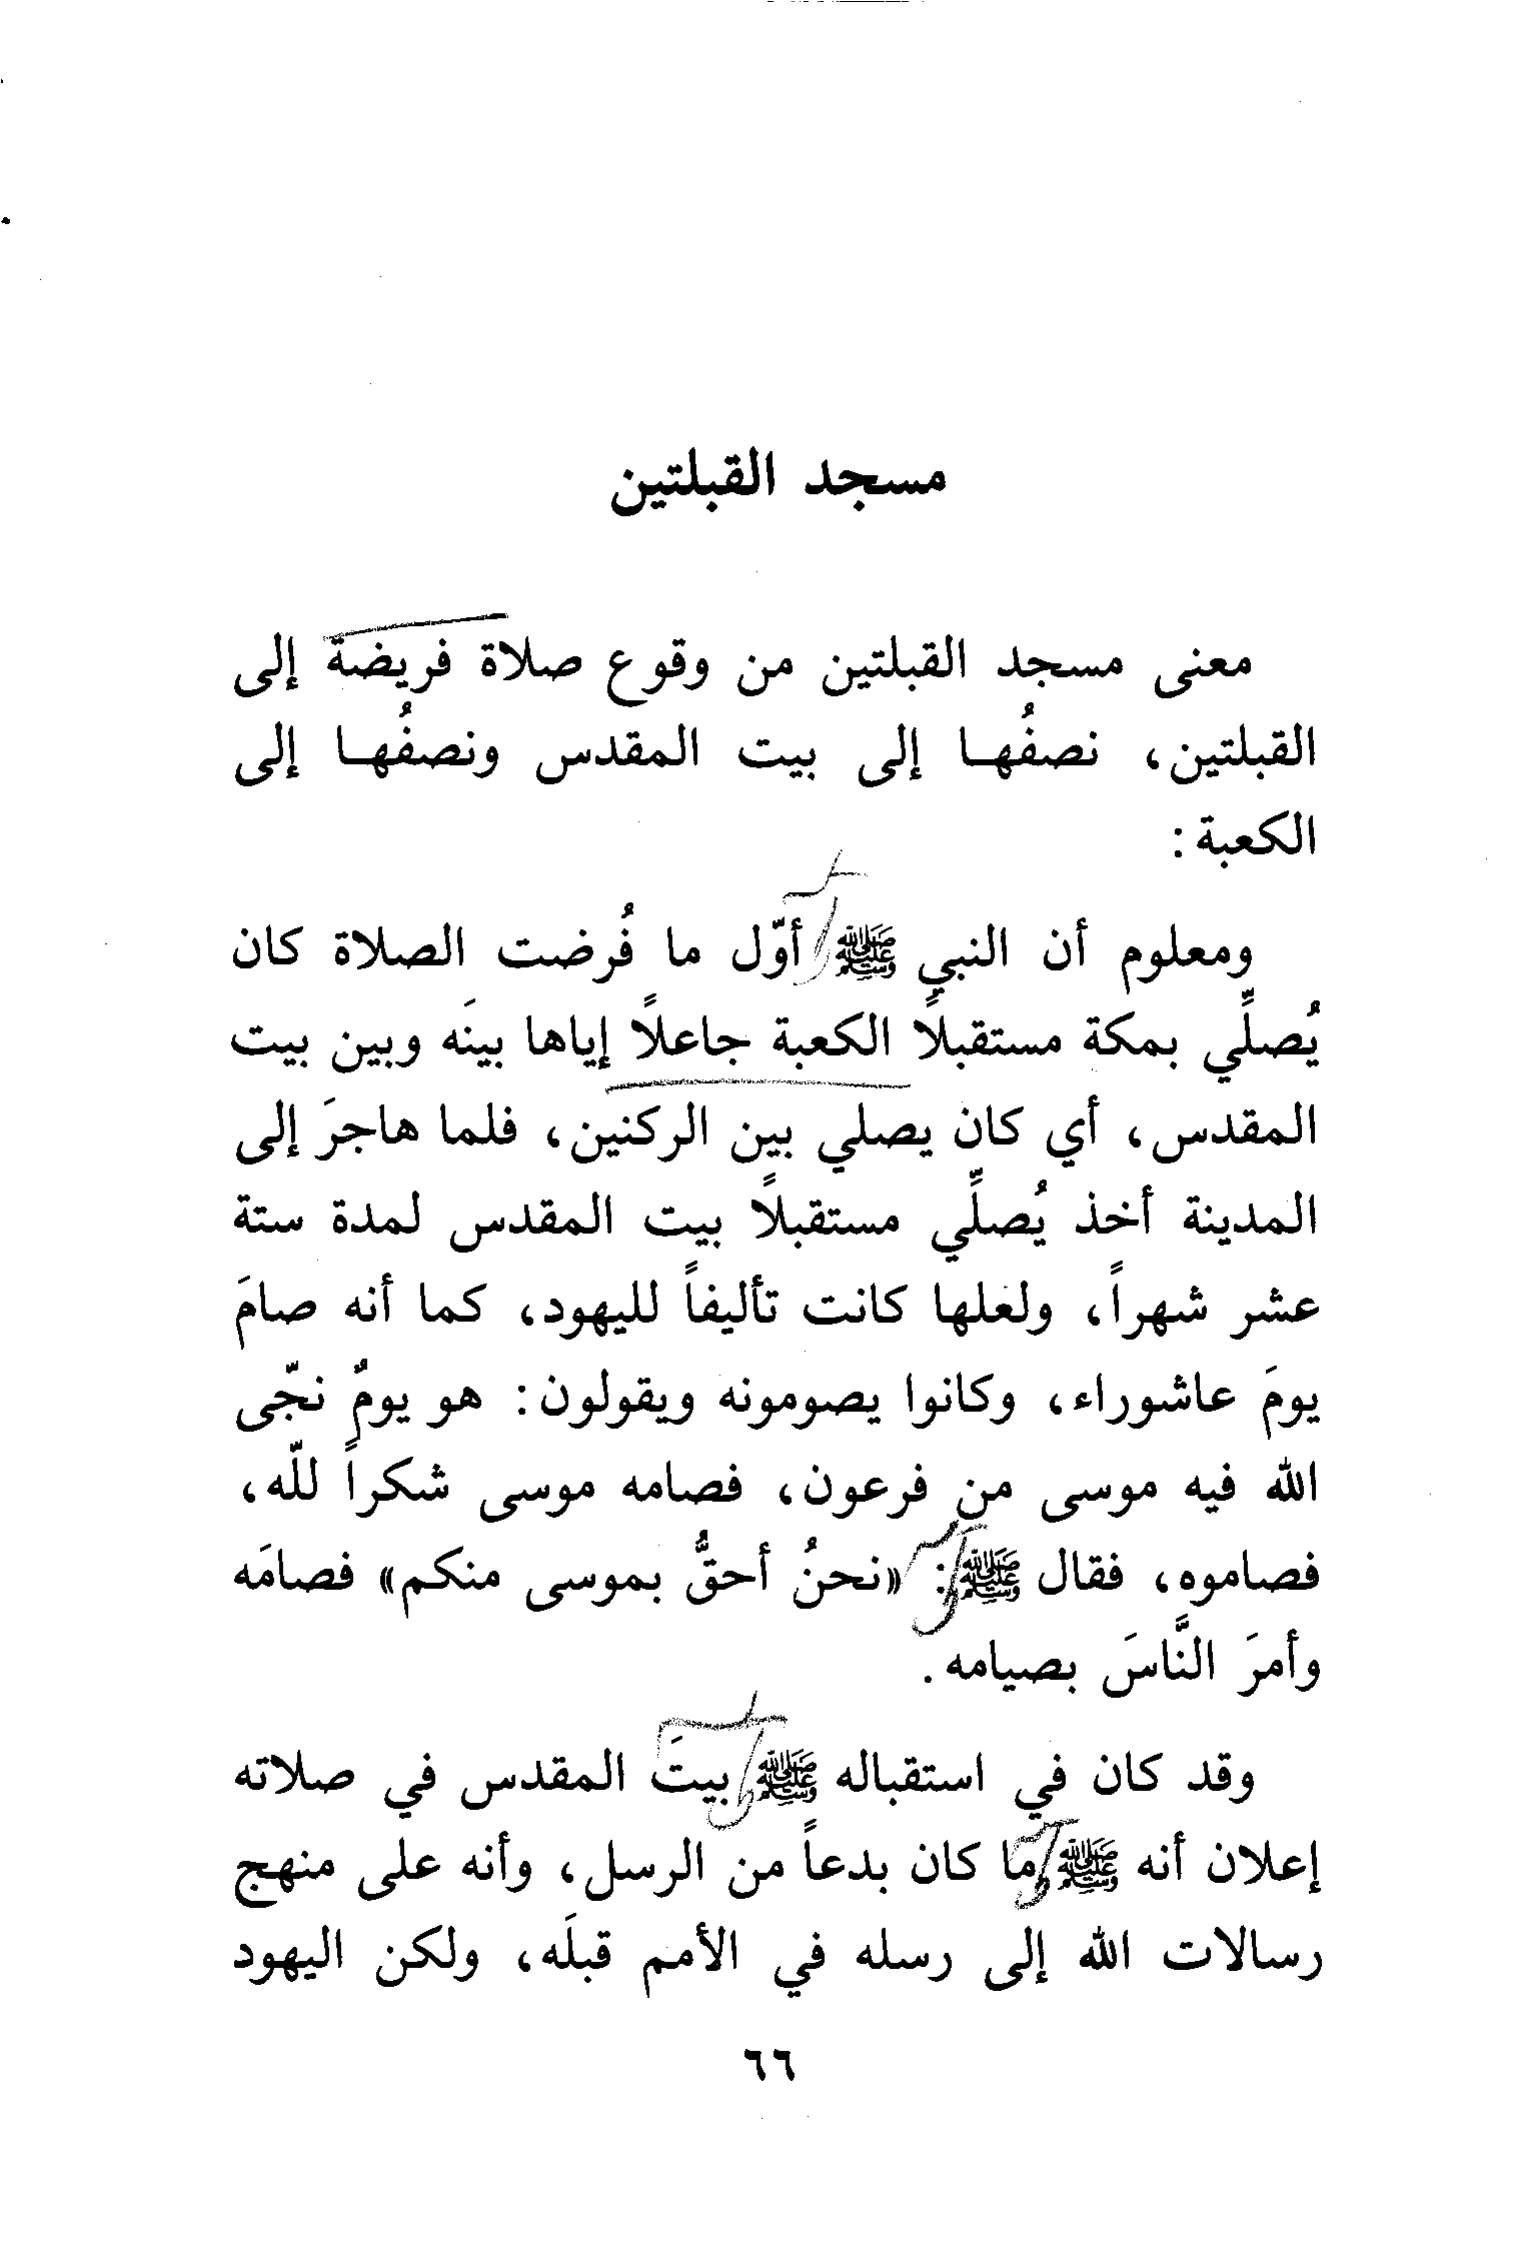 مسجد القبلتين
معنى مسجد القبلتين من وقوع صلاة فريضة إلى
القبلتين، نصفُهـا إلى بيت المقدس ونصفُهـا إلى
الكعبة:
ومعلوم أن النبي ﷺ أوّل ما فُرضت الصلاة كان
يُصلِّي بمكة مستقبلاً الكعبة جاعلاً إياها بينَه وبين بيت
المقدس، أي كان يصلي بين الركنين، فلما هاجرَ إلى
المدينة أخذ يُصلِّي مستقبلاً بيت المقدس لمدة ستة
عشر شهراً، ولعلها كانت تأليفاً لليهود، كما أنه صامَ
يومَ عاشوراء، وكانوا يصومونه ويقولون: هو يومٌ نجّى
الله فيه موسى من فرعون، فصامه موسى شكراً للّه،
فصاموه، فقال ﷺ: «نحنُ أحقُّ بموسى منكم» فصامَه
وأمرَ النَّاسَ بصيامه.
وقد كان في استقباله ﷺ بيتَ المقدس في صلاته
إعلان أنه ﷺ ما كان بدعاً من الرسل، وأنه على منهج
رسالات الله إلى رسله في الأمم قبلَه، ولكن اليهود
٦٦